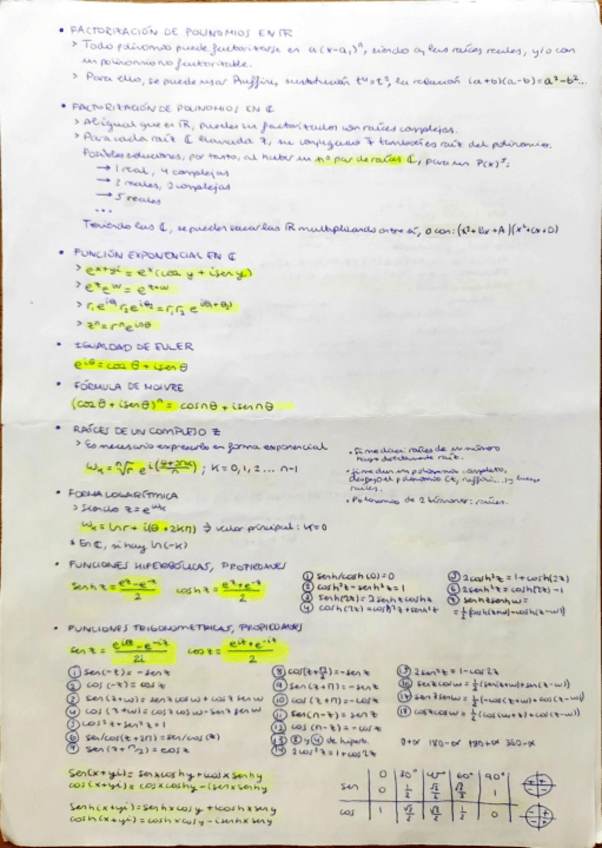 • FACTORIZACIÓN DE POLINOMIOS EN ℝ
> Todo polinomio puede factorizarse en a(x-a₁)ⁿ, siendo a₁ las raíces reales, y/o con
un polinomio no factorizable.
> Para ello, se puede usar Ruffini, sustitución t⁴=t², la relación (a+b)(a-b)=a²-b²...
• FACTORIZACIÓN DE POLINOMIOS EN ℂ
> Al igual que en ℝ, pueden ser factorizados con raíces complejas.
> Para cada raíz ℂ llamada z, su conjugado z̄ también es raíz del polinomio.
Posibles soluciones, por tanto, al haber un nº par de raíces ℂ, para un P(x)⁵:
→ 1 real, 4 complejas
→ 3 reales, 2 complejas
→ 5 reales
...
Teniendo las ℂ, se pueden sacar las ℝ multiplicando entre sí, o con: (x²+Bx+A)(x²+Cx+D)
• FUNCIÓN EXPONENCIAL EN ℂ
> e^(x+yi) = e^x (cos y + i sen y)
> e^z e^w = e^(z+w)
> r₁e^(iθ₁) r₂e^(iθ₂) = r₁r₂ e^(i(θ₁+θ₂))
> zⁿ = rⁿ e^(inθ)
• IGUALDAD DE EULER
e^(iθ) = cos θ + i sen θ
• FÓRMULA DE MOIVRE
(cos θ + i sen θ)ⁿ = cos nθ + i sen nθ
• RAÍCES DE UN COMPLEJO Z
> Es necesario expresarlo en forma exponencial
wₖ = ⁿ√r e^(i(θ+2πk)/n) ; K = 0, 1, 2 ... n-1
• Si me dan raíces de un número
hago directamente raíz.
• Si me dan un polinomio completo,
despejo el polinomio (t, ruffini...) y luego
raíces.
• Polinomio de 2 términos: raíces.
• FORMA LOGARÍTMICA
> Siendo z = e^(wₖ)
wₖ = ln r + i(θ + 2kπ) → valor principal: K=0
* En ℂ, sí hay ln(-k)
• FUNCIONES HIPERBÓLICAS, PROPIEDADES
senh z = (e^z - e^-z)/2 cosh z = (e^z + e^-z)/2
① senh/cosh(0)=0
② cosh²z - senh²z = 1
③ senh(2z) = 2senhz coshz
④ cosh(2z) = cosh²z + senh²z
⑤ 2cosh²z = 1 + cosh(2z)
⑥ 2senh²z = cosh(2z) - 1
⑦ senhz senhw =
= ½(cosh(z+w) - cosh(z-w))
• FUNCIONES TRIGONOMÉTRICAS, PROPIEDADES
sen z = (e^(iz) - e^(-iz))/2i cos z = (e^(iz) + e^(-iz))/2
① sen(-z) = -sen z
② cos(-z) = cos z
③ sen(z+w) = senz cosw + cosz senw
④ cos(z+w) = cosz cosw - senz senw
⑤ cos²z + sen²z = 1
⑥ sen/cos(z+2π) = sen/cos(z)
⑦ sen(z+π/2) = cos z
⑧ cos(z+π/2) = -sen z
⑨ sen(z+π) = -sen z
⑩ cos(z+π) = -cos z
⑪ sen(π-z) = sen z
⑫ cos(π-z) = -cos z
⑬ ③ y ④ de hiperb.
⑭ 2cos²z = 1 + cos2z
⑮ 2sen²z = 1 - cos2z
⑯ senz cosw = ½(sen(z+w) + sen(z-w))
⑰ senz senw = ½(-cos(z+w) + cos(z-w))
⑱ cosz cosw = ½(cos(w+z) + cos(z-w))
0+α 180-α 180+α 360-α
sen(x+yi) = senx coshy + i cosx senhy
cos(x+yi) = cosx coshy - i senx senhy
senh(x+yi) = senhx cosy + i coshx seny
cosh(x+yi) = coshx cosy - i senhx seny
0 30° 45° 60° 90°
sen 0 1/2 √2/2 √3/2 1
cos 1 √3/2 √2/2 1/2 0